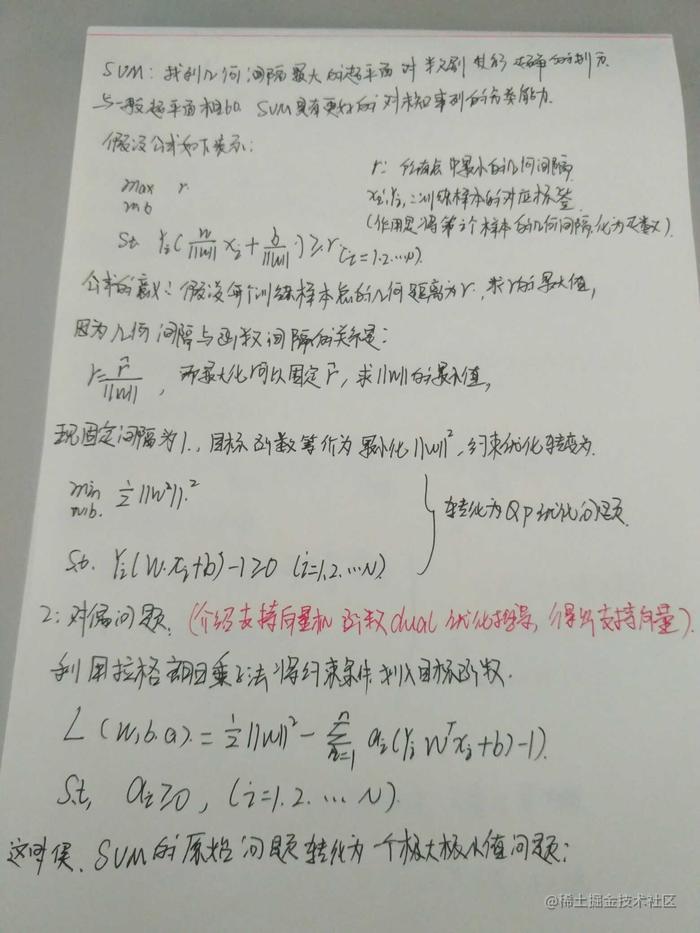 SVM：找到几何间隔最大的超平面对半划分正确的划分
与一般超平面相比. SVM具有更好的对未知事例的分类能力.
假设公式如下表示:
max r
w.b
r: 所有点中最小的几何间隔
xi,yi,:训练样本的对应标签
(作用是将第i个样本的几何间隔化为正数).
St. Yi(w/||w|| xi + b/||w||) ≥ r (i=1.2...N).
公式的意义: 假设每个训练样本点的几何距离为r, 求r的最大值,
因为几何间隔与函数间隔的关系是:
r = r̂/||w||, 而最大化r可以固定r̂, 求||w||的最小值,
现固定间隔为1., 目标函数等价为最小化||w||², 约束优化转变为.
min ½||w²||.²
w.b.
转化为QP优化问题.
S.t. Yi(w.xi+b)-1≥0 (i=1.2...N)
2: 对偶问题. (介绍支持向量机函数dual优化推导, 得出支持向量).
利用拉格朗日乘子法将约束条件划入目标函数.
L(w,b.a) = ½||w||² - Σ(i=1 → n) ai(Yi wᵀxi+b)-1).
S.t, ai≥0, (i=1.2...N)
这时候. SVM的原始问题转化为一个极大极小值问题:
@稀土掘金技术社区